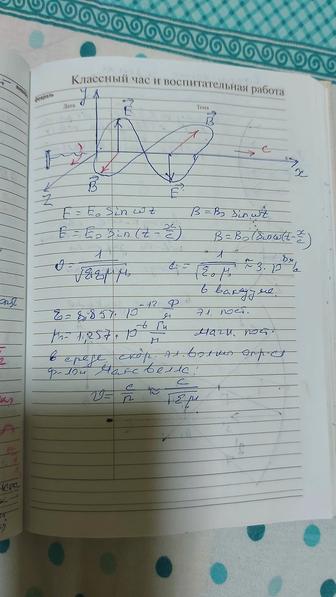 Классный час и воспитательная работа
февраль
Дата
Тема
y
E
c
x
B
z
E
E = E₀ sin ωt   B = B₀ sin ωt
E = E₀ sin (t - x/c)   B = B₀ sin ω(t - x/c)
υ = 1/√(εε₀μμ₀)   c = 1/√(ε₀μ₀) ≈ 3·10⁸ м/с
в вакууме
ε₀ = 8,85·10⁻¹² Ф/м   эл. пост.
μ₀ = 1,257·10⁻⁶ Гн/м   магн. пост.
в среде скор. эл. волны опред
ф-лы Максвелла:
υ = c/n ≈ c/√(εμ)